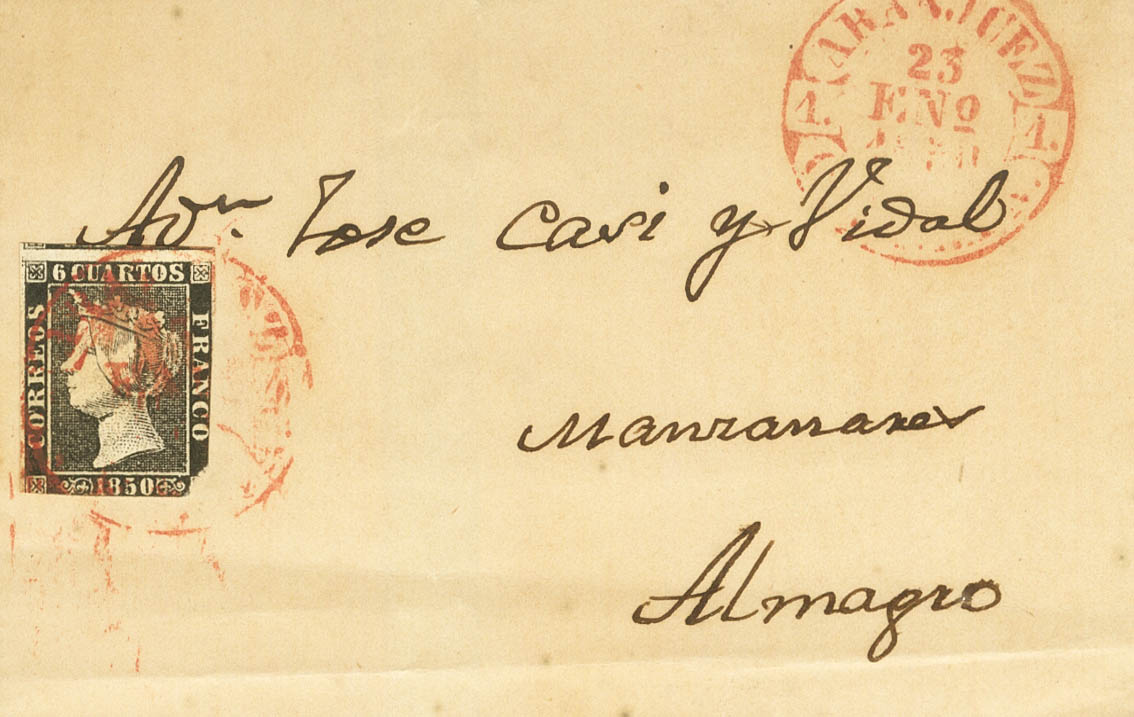 ARANJUEZ
23
ENº
1850
1. 1.
Adn. Jose Casi y Vidal
6 CUARTOS
CORREOS
FRANCO
1850
Manzanares
Almagro